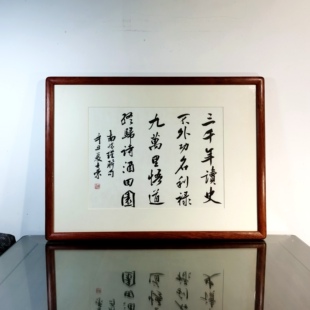 三千年讀史
不外功名利祿
九萬里悟道
終歸詩酒田園
南懷瑾
辛丑夏